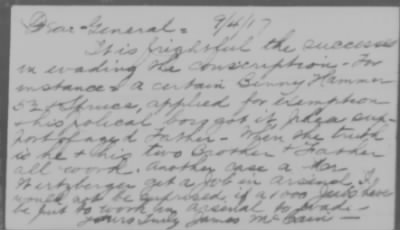 Dear General = 9/4/17
It is frightful the success
in evading the conscription - For
instance a certain Benny Hammer
5th & Spruce, applied for exemption
& his polical boss got it plea sup-
port of aged Father - When the truth
is he & his two Brother & Father
all work. Another case a Mr
Wertzberger got a job in arsenal, I'd
would not be surprised if 2000 have
be put to work in Arsenal to evade -
Yours Truly James McCain -